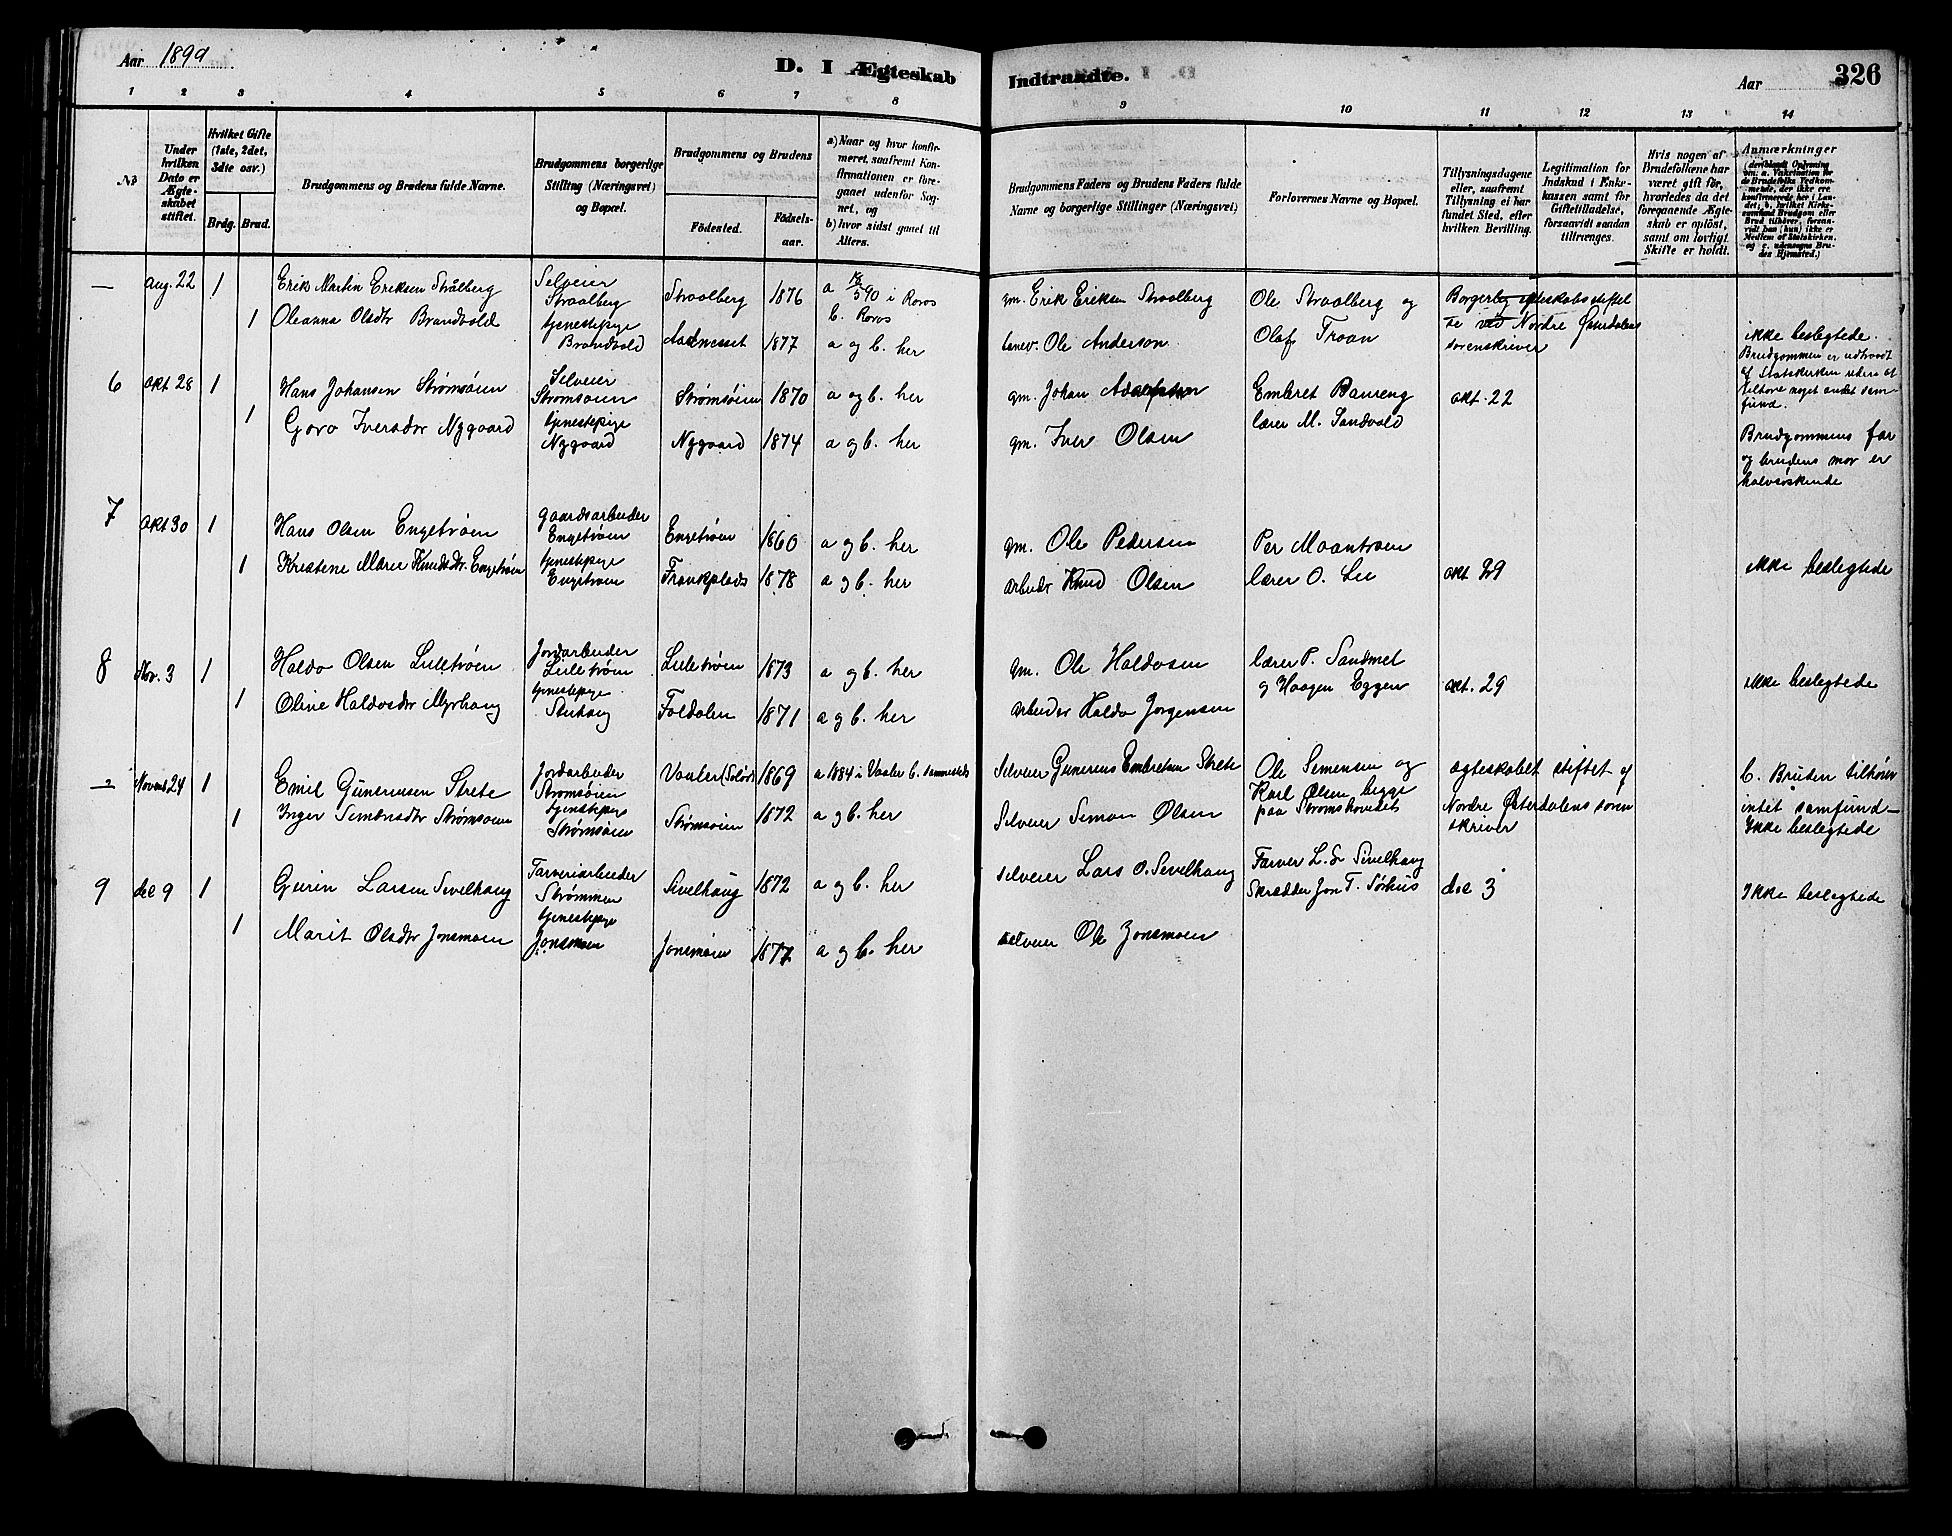 Aar 1899
D. I Ægteskab Indtraadte.
Aar
326
1 2 3 4 5 6 7 8 9 10 11 12 13 14
No
Under hvilken Dato er Ægteskabet stiftet.
Hvilket Gifte (1ste, 2det, 3dte osv.)
Brdg. Brud.
Brudgommens og Brudens fulde Navne.
Brudgommens borgerlige Stilling (Næringsvei) og Bopæl.
Brudgommens og Brudens
Fødested.
Fødselsaar.
a) Naar og hvor konfirmeret, saafremt Konfirmationen er foregaaet udenfor Sognet, og
b) hvor sidst gaaet til Alters.
Brudgommens Faders og Brudens Faders fulde Navne og borgerlige Stillinger (Næringsvei)
Forlovernes Navne og Bopæl.
Tillysningsdagene eller, saafremt Tillysning ei har fundet Sted, efter hvilken Bevilling.
Legitimation for Indskud i Enkekassen samt for Giftetilladelse, forsaavidt saadan tiltrænges.
Hvis nogen af Brudefolkene har været gift før, hvorledes da det foregaaende Ægteskab er opløst, samt om lovligt Skifte er holdt.
Anmærkninger
— aug. 22 1 Erik Martin Eriksen Strålberg Selveier Straalberg Straalberg 1876 a 590 i Røros b. Røros gm. Erik Eriksen Straalberg Ole Straalberg og Borgerlig egteskabs stiftet
1 Oleanna Olsdtr Brandvold tjenestepige Brandvold 1877 a og b. her Ole Anderson Olaf Troan ved Nordre Østerdalens sorenskriver
ikke beslegtede.
Brudgommen er udtraadt
af Statskirken uden at
tilhøre noget andet samfund.
6 okt 28 1 Hans Johansen Strømsøien Selveier Strømsøien Strømsøien 1870 a og b. her gm. Johan Embret Baureng okt. 22
1 Goro Iversdtr Nygaard tjenestepige Nygaard Nygaard 1874 a og b. her gm. Iver Olsen lærer M. Sandvold
Brudgommens far
og brudens mor er
halvsøskende
7 okt 30 1 Hans Olsen Engetrøen gaardsarbeider Engetrøen Engetrøen 1860 a og b. her gm. Ole Pedersen Per Moantrøen
1 Kristene Marie Knudsdtr. Engetrøen tjenestepige Engetrøen 1878 a og b. her arbeider Knud Olsen lærer O. Lie okt 29 ikke beslegtede
8 Nov. 3 1 Haldo Olsen Lilletrøen Jordarbeider Lilletrøen Lilletrøen 1873 a og b. her gm. Ole Haldosen lærer P. Sandmel
1 Oline Haldosdtr Myrhaug tjenestepige Foldalen 1871 a og b. her arbeider Haldo Jørgensen og Haagen Eggen okt. 29 ikke beslegtede
— Novemb 24 1 Emil Gunerusen Strete Jordarbeider Strømsøien Vaaler (Solør) 1869 a 1884 i Vaaler b. sammesteds Selveier Gunerius Embretsen Strete Ole Simensen og egteskabet stiftet af b. Bruden tilhører
1 Inger Simensdtr Strømsøien tjenestepige Strømsøien Strømsøien 1872 a og b. her Selveier Simon Olsen Karl Olsen begge paa Strømshovedet Nordre Østerdalens sorenskriver intet samfund—
Ikke beslegtede
9 dec 9 1 Gurin Larsen Sevelhaug Farveriarbeider Strømmen Sivelhaug 1872 a og b. her selveier Lars O. Sevelhaug Farver L. Sivelhaug
Skrædder Jon T. Sørhus dec 3 Ikke beslegtede
1 Marit Olsdtr Jonsmoen tjenestepige Jonsmoen Jonsmoen 1877 a og b. her selveier Ole Jonsmoen